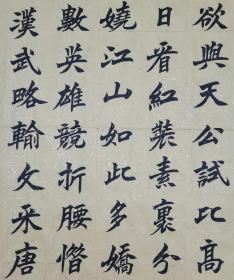 欲與天公試比高
日看紅裝素裹分
嬈江山如此多嬌
數英雄競折腰惜
漢武略輸文采唐